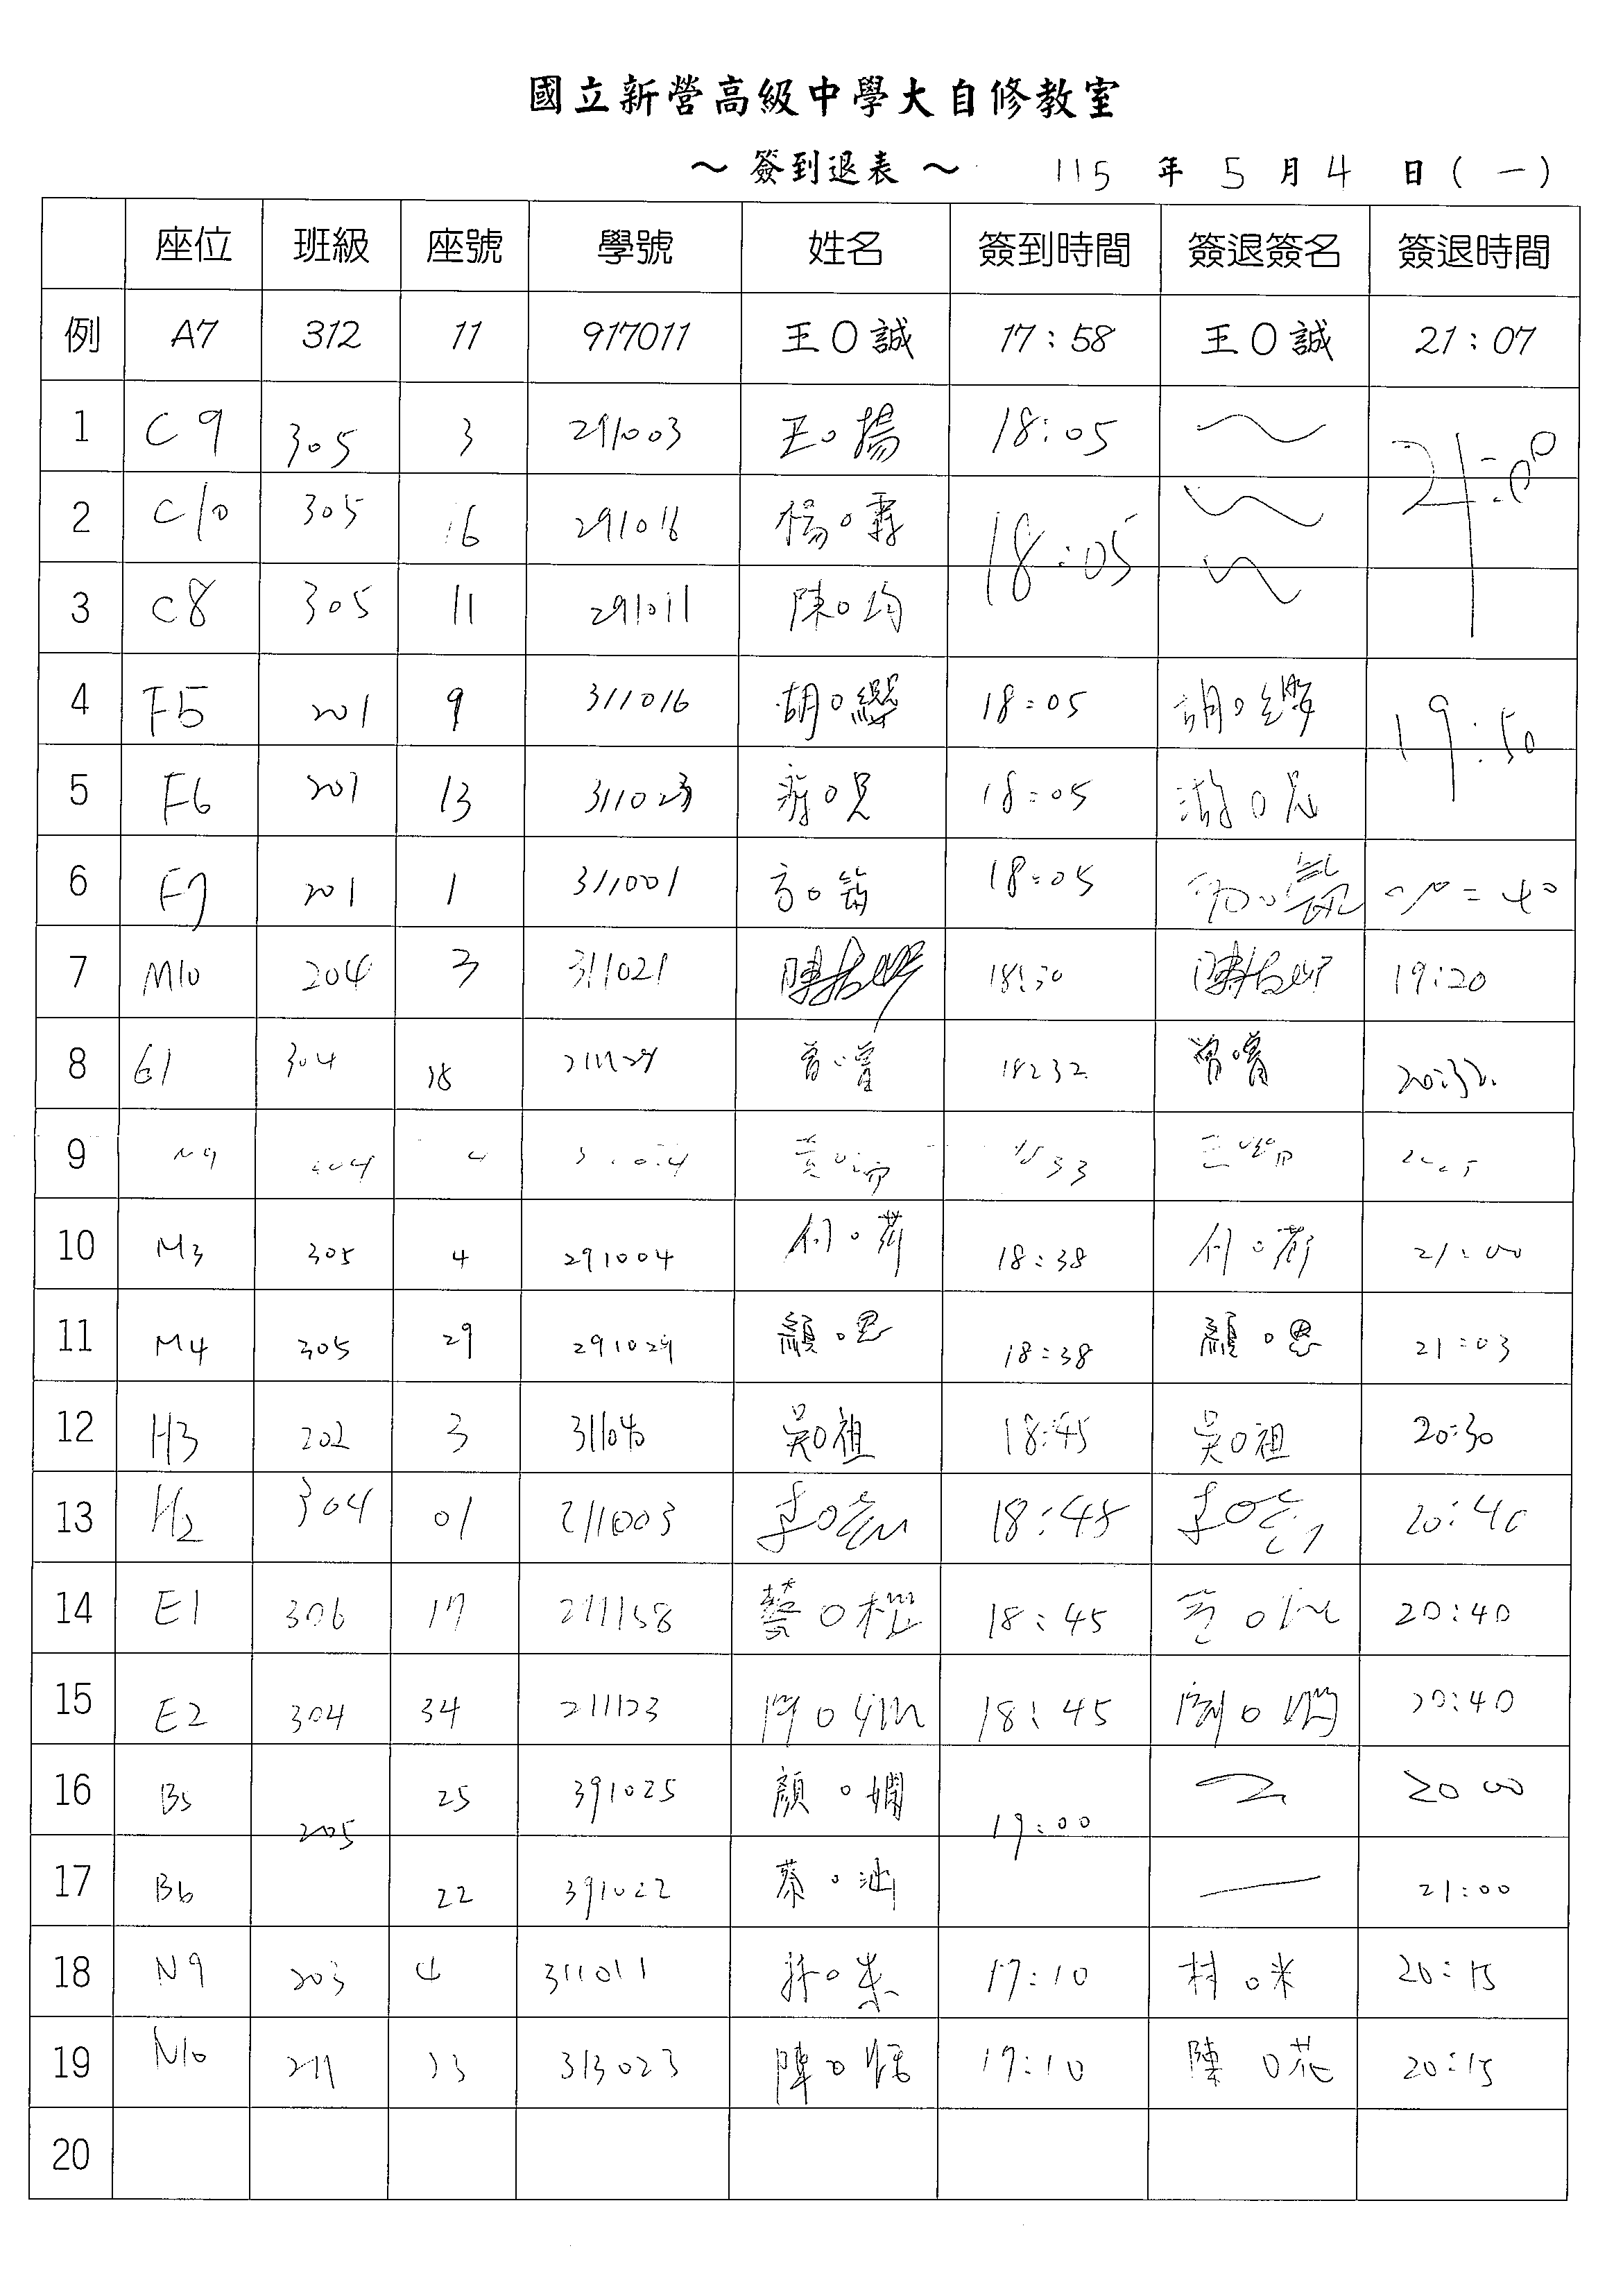 國立新營高級中學大自修教室
～ 簽到退表 ～ 115 年 5 月 4 日 ( 一 )
座位 班級 座號 學號 姓名 簽到時間 簽退簽名 簽退時間
例 A7 312 11 917011 王O誠 17:58 王O誠 21:07
1 C9 305 3 291003 王O揚 18:05 21:00
2 C10 305 16 291016 楊O霖 18:05
3 C8 305 11 291011 陳O均
4 F5 201 9 311016 胡O纓 18:05 胡O纓 19:50
5 F6 201 13 311023 游O兒 18:05 游O兒
6 F7 201 1 311001 方O筠 18:05
7 M10 204 3 311021 18:30 19:20
8 G1 304 18 曾O 18:32 曾O 20:32
9 N9 204 4 黃O 18:33
10 M3 305 4 291004 何O荷 18:38 何O荷 21:00
11 M4 305 29 291029 顏O恩 18:38 顏O恩 21:03
12 H3 202 3 311040 吳O祖 18:45 吳O祖 20:30
13 H2 304 01 211003 李O 18:45 李O 20:40
14 E1 306 17 211158 O櫻 18:45 20:40
15 E2 304 34 211123 18:45 20:40
16 B5 205 25 391025 顏O嫻 19:00 20:00
17 B6 22 391022 蔡O 21:00
18 N9 203 4 311011 17:10 20:15
19 N10 211 23 313023 陳O恬 17:10 陳O 20:15
20